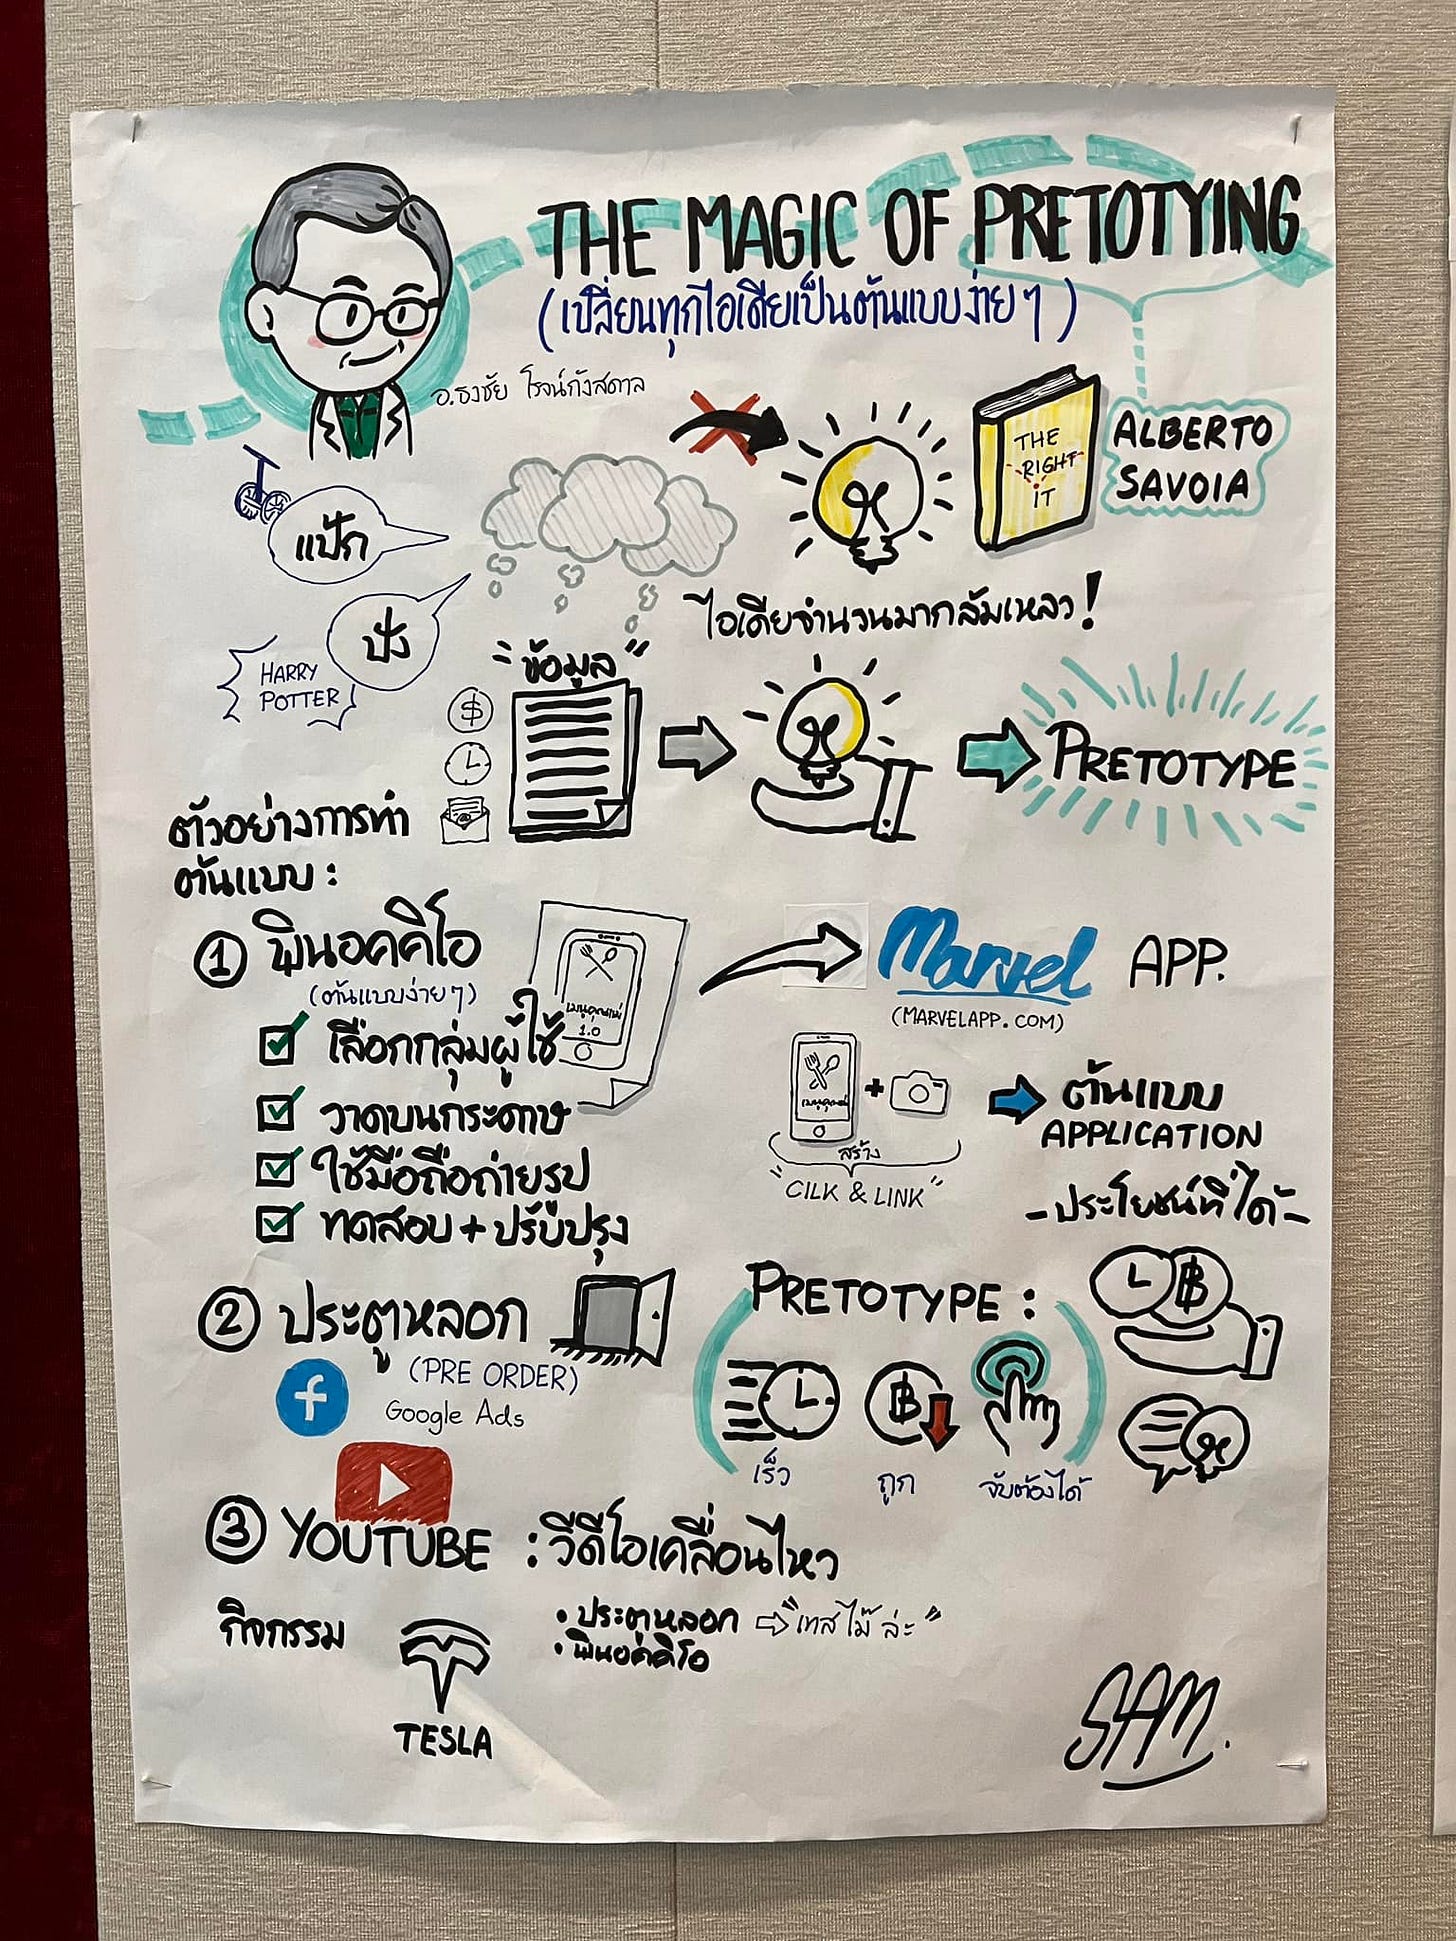 THE MAGIC OF PRETOTYING
(เปลี่ยนทุกไอเดียเป็นต้นแบบง่าย ๆ)
อ.ธงชัย โรจน์กังสดาล
THE
RIGHT
IT
ALBERTO
SAVOIA
แป้ก
ปัง
HARRY
POTTER
ไอเดียจำนวนมากล้มเหลว!
"ข้อมูล"
$
@
PRETOTYPE
ตัวอย่างการทำ
ต้นแบบ :
① พินอคคิโอ
(ต้นแบบง่าย ๆ)
เมนูคุณแม่
1.0
เลือกกลุ่มผู้ใช้
วาดบนกระดาษ
ใช้มือถือถ่ายรูป
ทดสอบ + ปรับปรุง
Marvel APP.
(MARVELAPP.COM)
+
สร้าง
"CILK & LINK"
ต้นแบบ
APPLICATION
- ประโยชน์ที่ได้ -
② ประตูหลอก
(PRE ORDER)
f
Google Ads
PRETOTYPE :
฿
เร็ว
฿
ถูก
จับต้องได้
③ YOUTUBE : วีดีโอเคลื่อนไหว
กิจกรรม
TESLA
• ประตูหลอก ⇨ "เทสไม๊ ล่ะ"
• พินอคคิโอ
SAM.